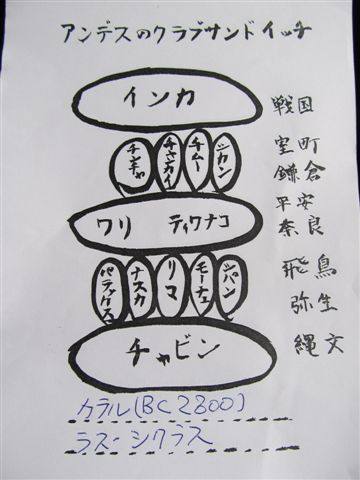 アンデスのクラブサンドイッチ
インカ 戦国
室町
チャンカイ チムー シカン 鎌倉
平安
ワリ ティワナコ 奈良
飛鳥
パラカス ナスカ リマ モーチェ シパン 弥生
チャビン 縄文
カラル(BC2800)
ラス・シクラス